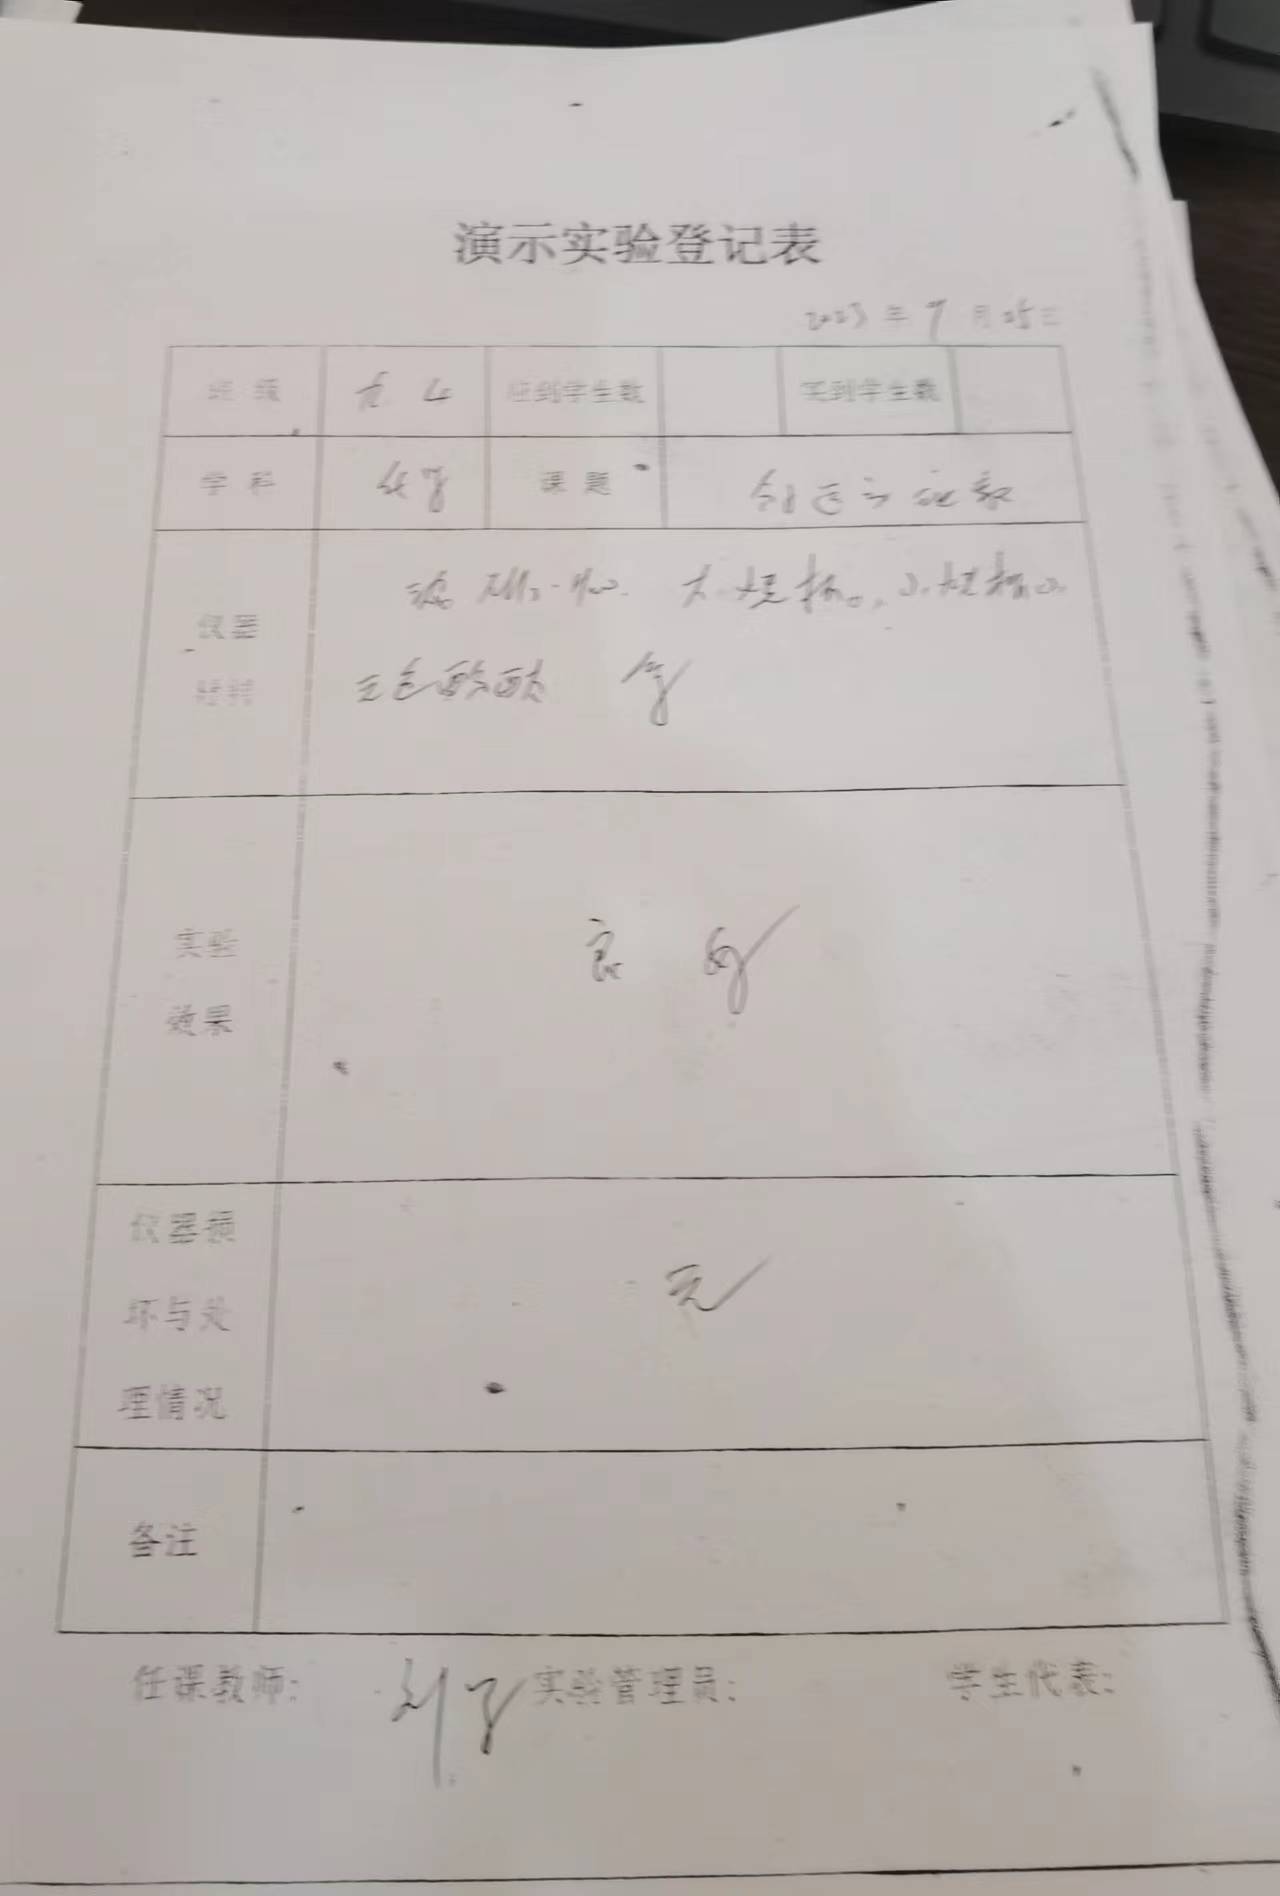 演示实验登记表
2023年9月25日
班 级 九 4 应到学生数 实到学生数
学 科 化学 课 题 分子运动
仪器
材料
浓NH₃·H₂O. 大烧杯 小烧杯
无色酚酞 等
实验
效果
良好
仪器损
坏与处
理情况
无
备注
任课教师: 实验管理员: 学生代表: